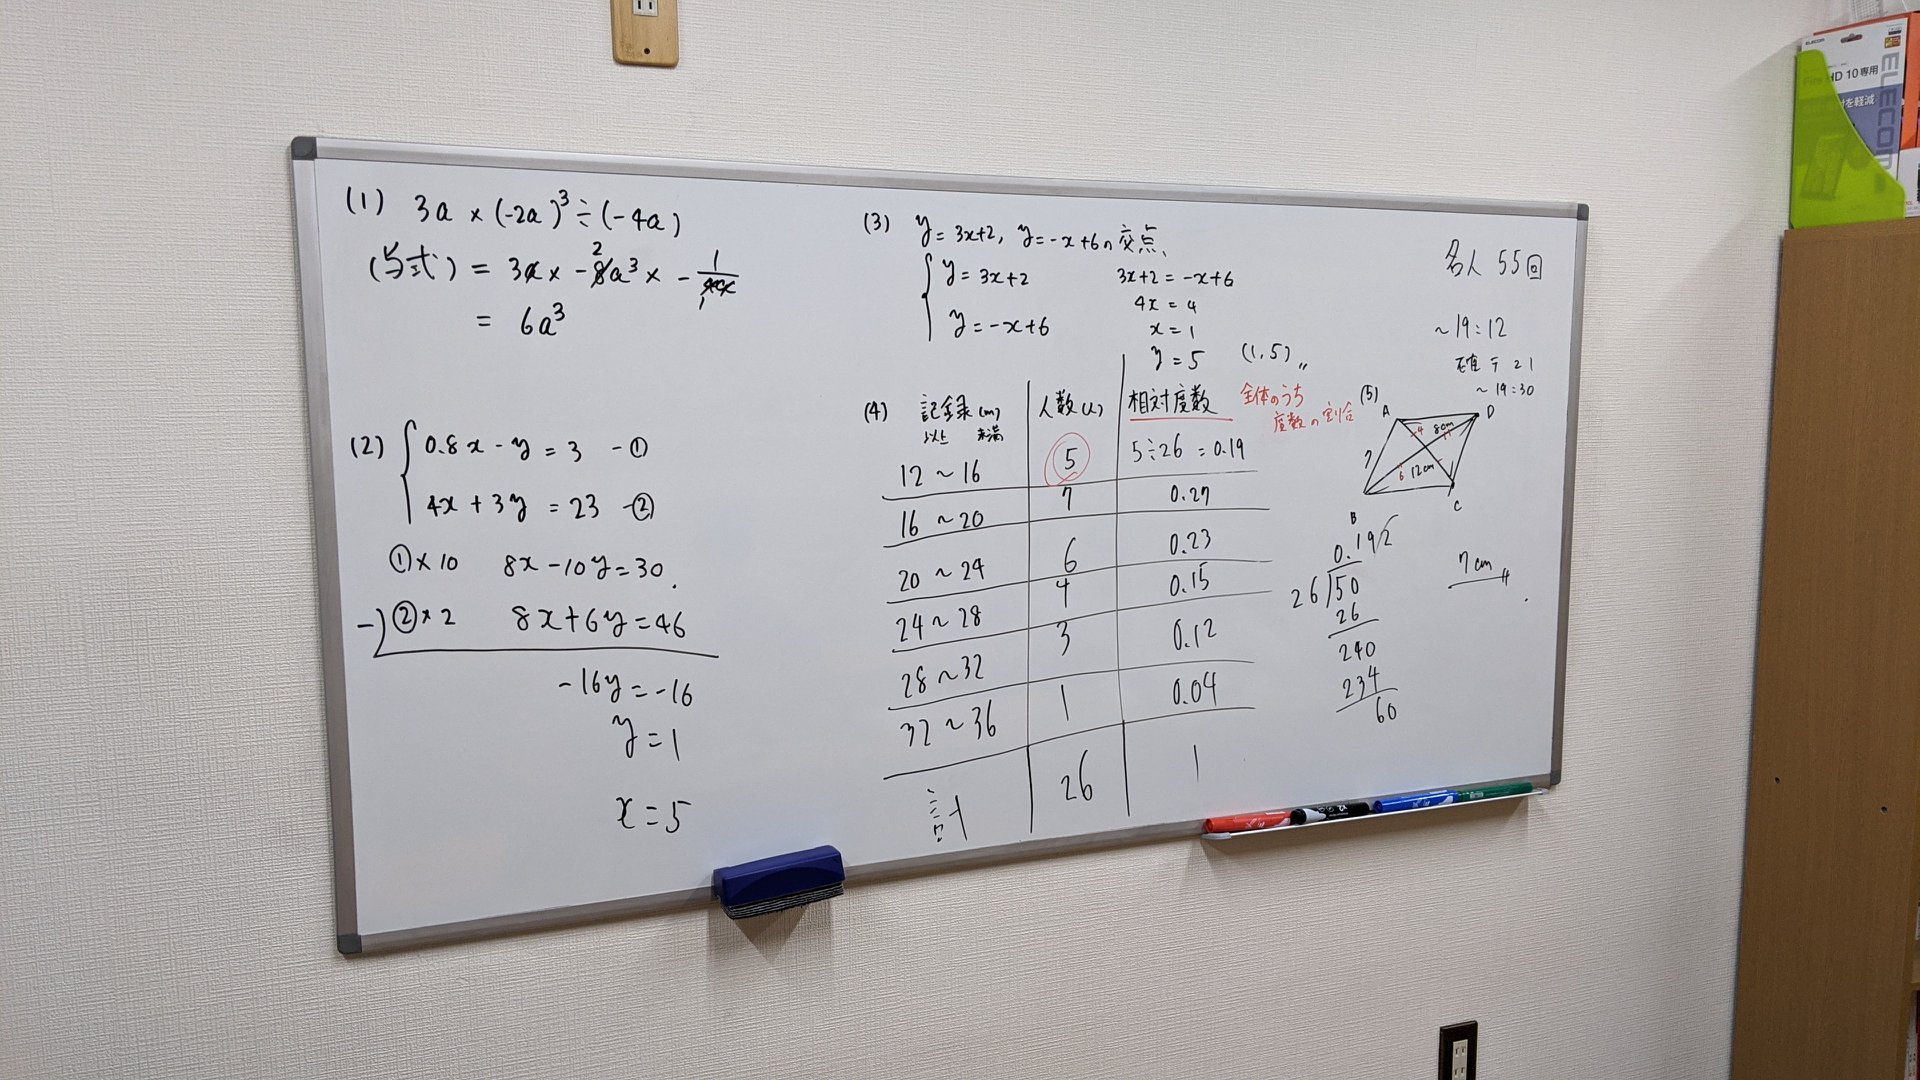 (1) 3a × (-2a)³ ÷ (-4a)
(与式) = 3a × -8a³ × - 1/4a
2
1
= 6a³
(2) { 0.8x - y = 3 - ①
4x + 3y = 23 - ②
①×10 8x - 10y = 30.
-) ②×2 8x + 6y = 46
-16y = -16
y = 1
x = 5
(3) y = 3x+2, y = -x+6の交点、
{ y = 3x+2
y = -x+6
3x+2 = -x+6
4x = 4
x = 1
y = 5 (1,5)〃
(4) 記録(m) 人数(人) 相対度数
以上 未満
全体のうち
度数の割合
12 ~ 16 5 5÷26 = 0.19
16 ~ 20 7 0.27
20 ~ 24 6 0.23
24 ~ 28 4 0.15
28 ~ 32 3 0.12
32 ~ 36 1 0.04
計 26 1
名人 55回
~19:12
確テ 21
~19:30
(5)
A D
4 8cm
7
6 12cm
C
B
0.192
26)50
26
240
234
60
7cm
ELECOM
HD 10専用
を軽減
ELECOM